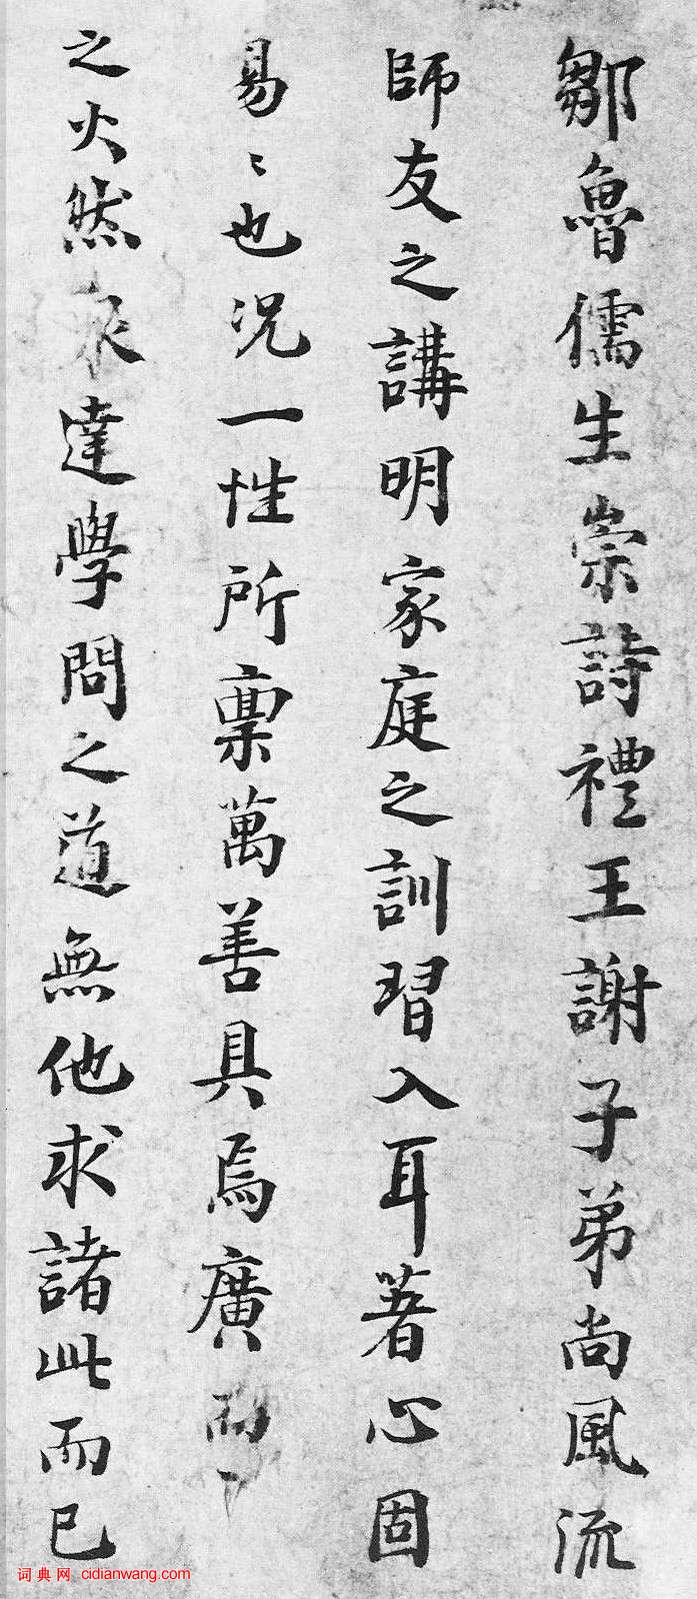 鄒魯儒生崇詩禮王謝子弟尚風流
師友之講明家庭之訓習入耳著心固
易〻也況一性所稟萬善具焉廣而
之火然泉達學問之道無他求諸此而已
词典网 cidianwang.com